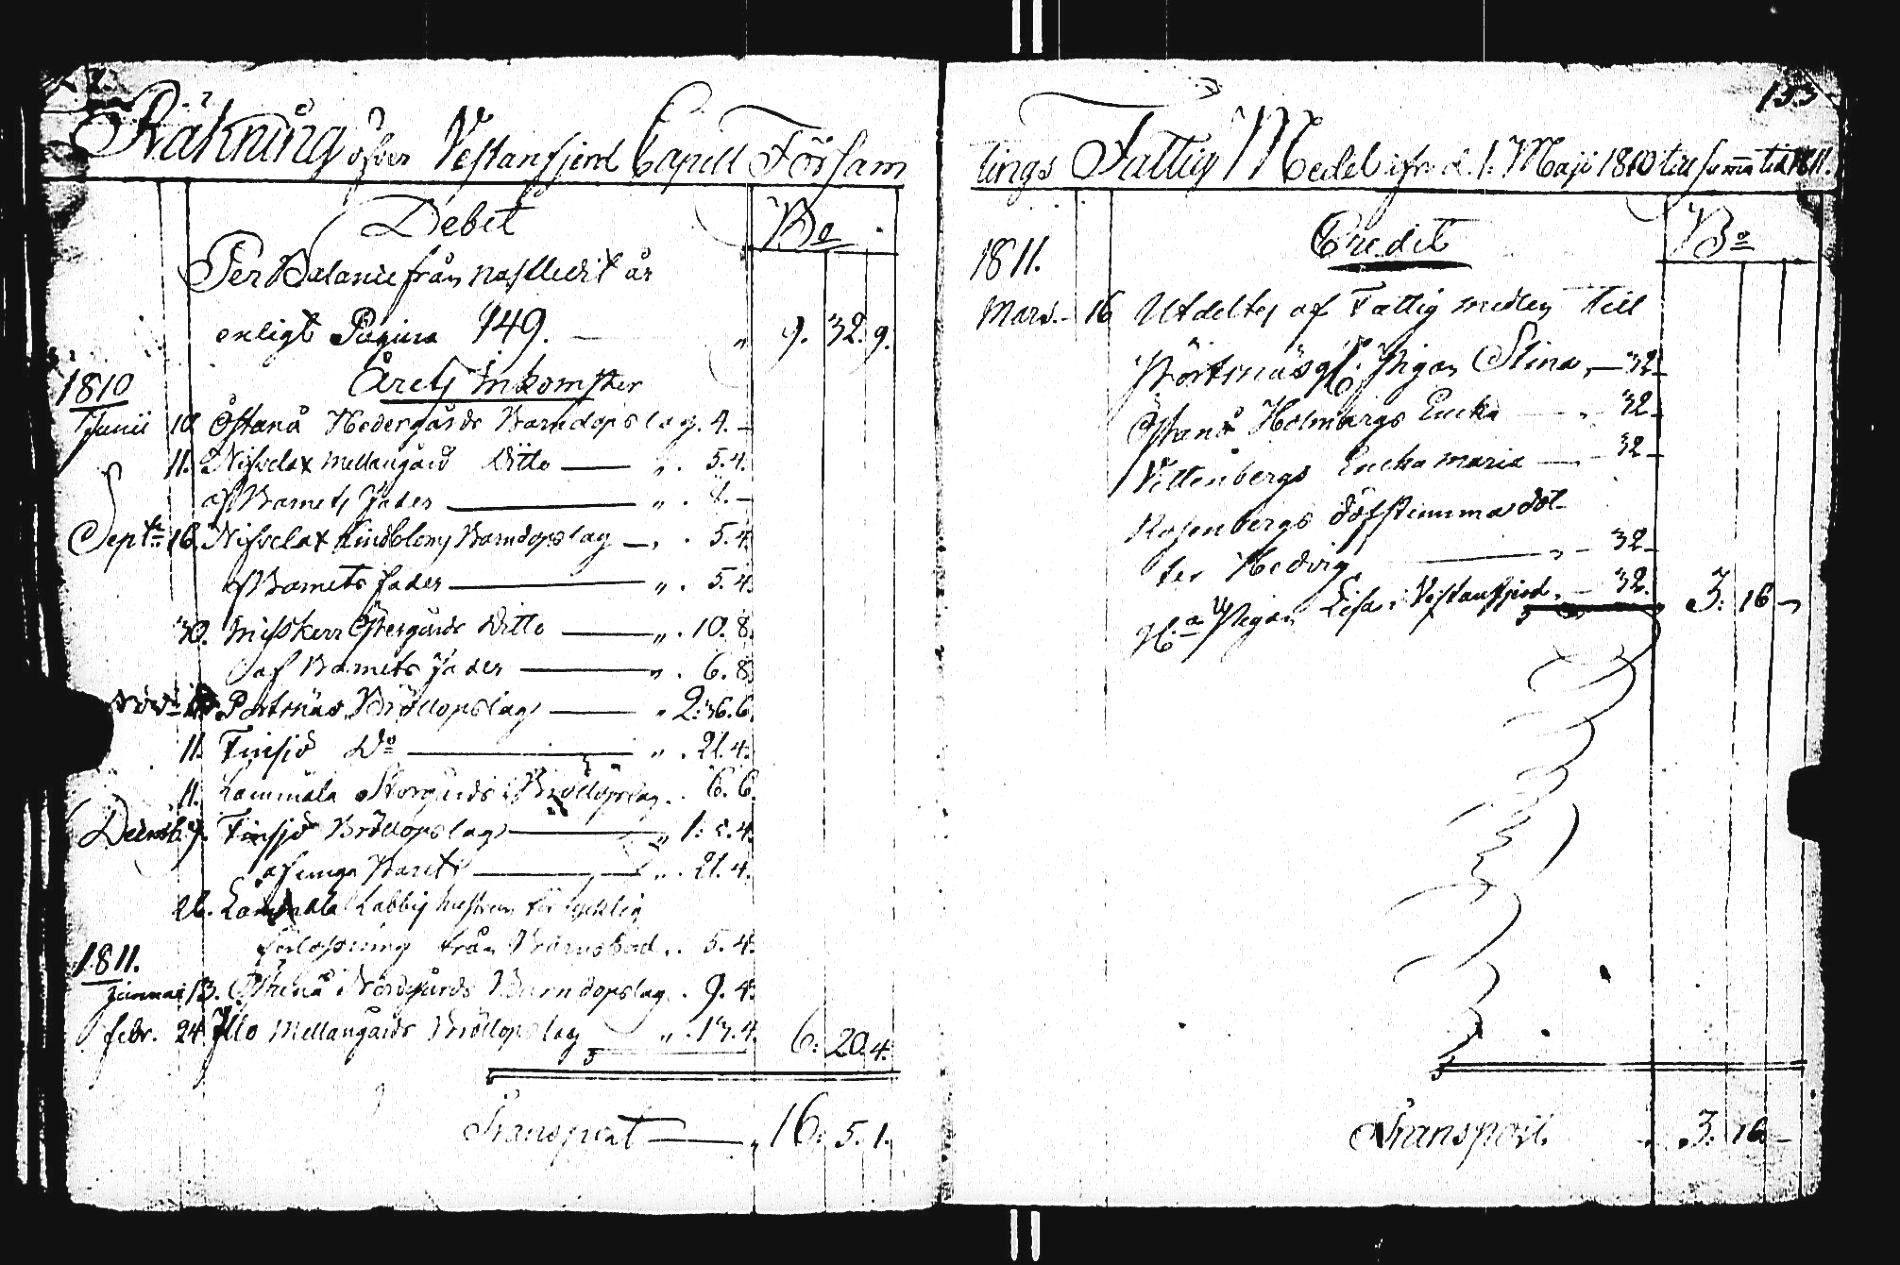 Räkning öfver Vestanfjerd Capell Församlings Fattig Medel ifrån d. 1. Maji 1810 till samma tid 1811.
153
Debet
Bo
Per Balance från nästledit år
enligt Pagina 149. — " 9. 32. 9.
1810
Årets Inkomster
Junii 10. Östanå Nedergårds Barndopslag. 4. —
11. Nifvelax Mellangård Ditto — " . 5. 4.
af Barnets Fader — " . 8. —
Septbr 16. Nifvelax Lindbloms Barndopslag — " . 5. 4.
af Barnets Fader — " . 5. 4.
30. Misskerr Östergårds Ditto — " . 10. 8.
af Barnets Fader — " . 6. 8.
Novr Pörtnäs Bröllopslag — " 2: 36. 6.
11. Finsjö Do — " . 21. 4.
11. Lammala Storgårds Bröllopslag . . 6. 6.
Decemb. 9. Finsjö Bröllopslag — " 1: 5. 4.
af unga Paret — " . 21. 4.
26. Lammala Labbis hustrun för lycklig
förlossning från Barnsbörd . . 5. 4.
1811.
Januari 13. Östanå Nordgårds Barndopslag . 9. 4.
febr. 24. Illo Mellangårds Bröllopslag " . 13. 4. 6: 20. 4.
Transport — " 16: 5. 1.
Credit
Bo
1811.
Mars. 16 Utdeltes af Fattig medlen till
Pörtsnäs Pigan Stina, — 32 —
Östanå Holmbergs Encka — . 32 —
Vittenbergs Encka Maria — 32 —
Rosenbergs döfstumma dot-
ter Hedvig — " — 32 —
Pigan Lisa i Vestanfjerd. — 32. 3: 16 —
Transport. " 3. 16 —